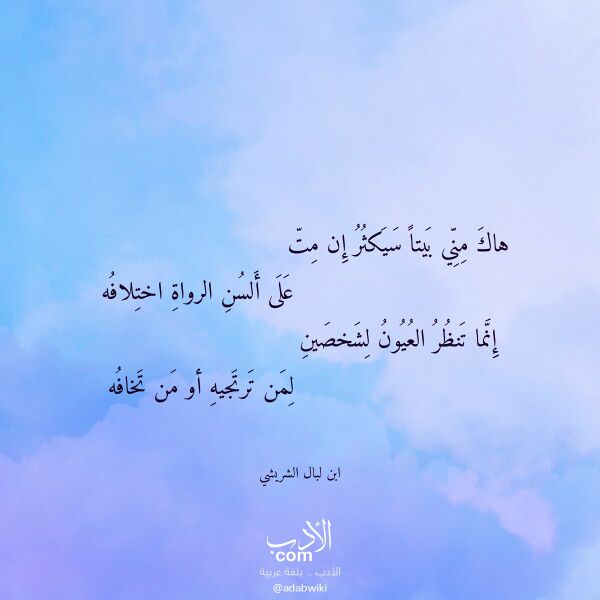 هاكَ مِنِّي بَيتاً سَيَكثُرُ إِن مِتّ
عَلَى أَلسُنِ الرواةِ اختِلافُه
إِنَّما تَنظُرُ العُيُونُ لِشَخصَينِ
لِمَن تَرتَجيهِ أو مَن تَخافُه
ابن لبال الشريشي
الأدب
com
الأدب .. بلغة عربية
@adabwiki